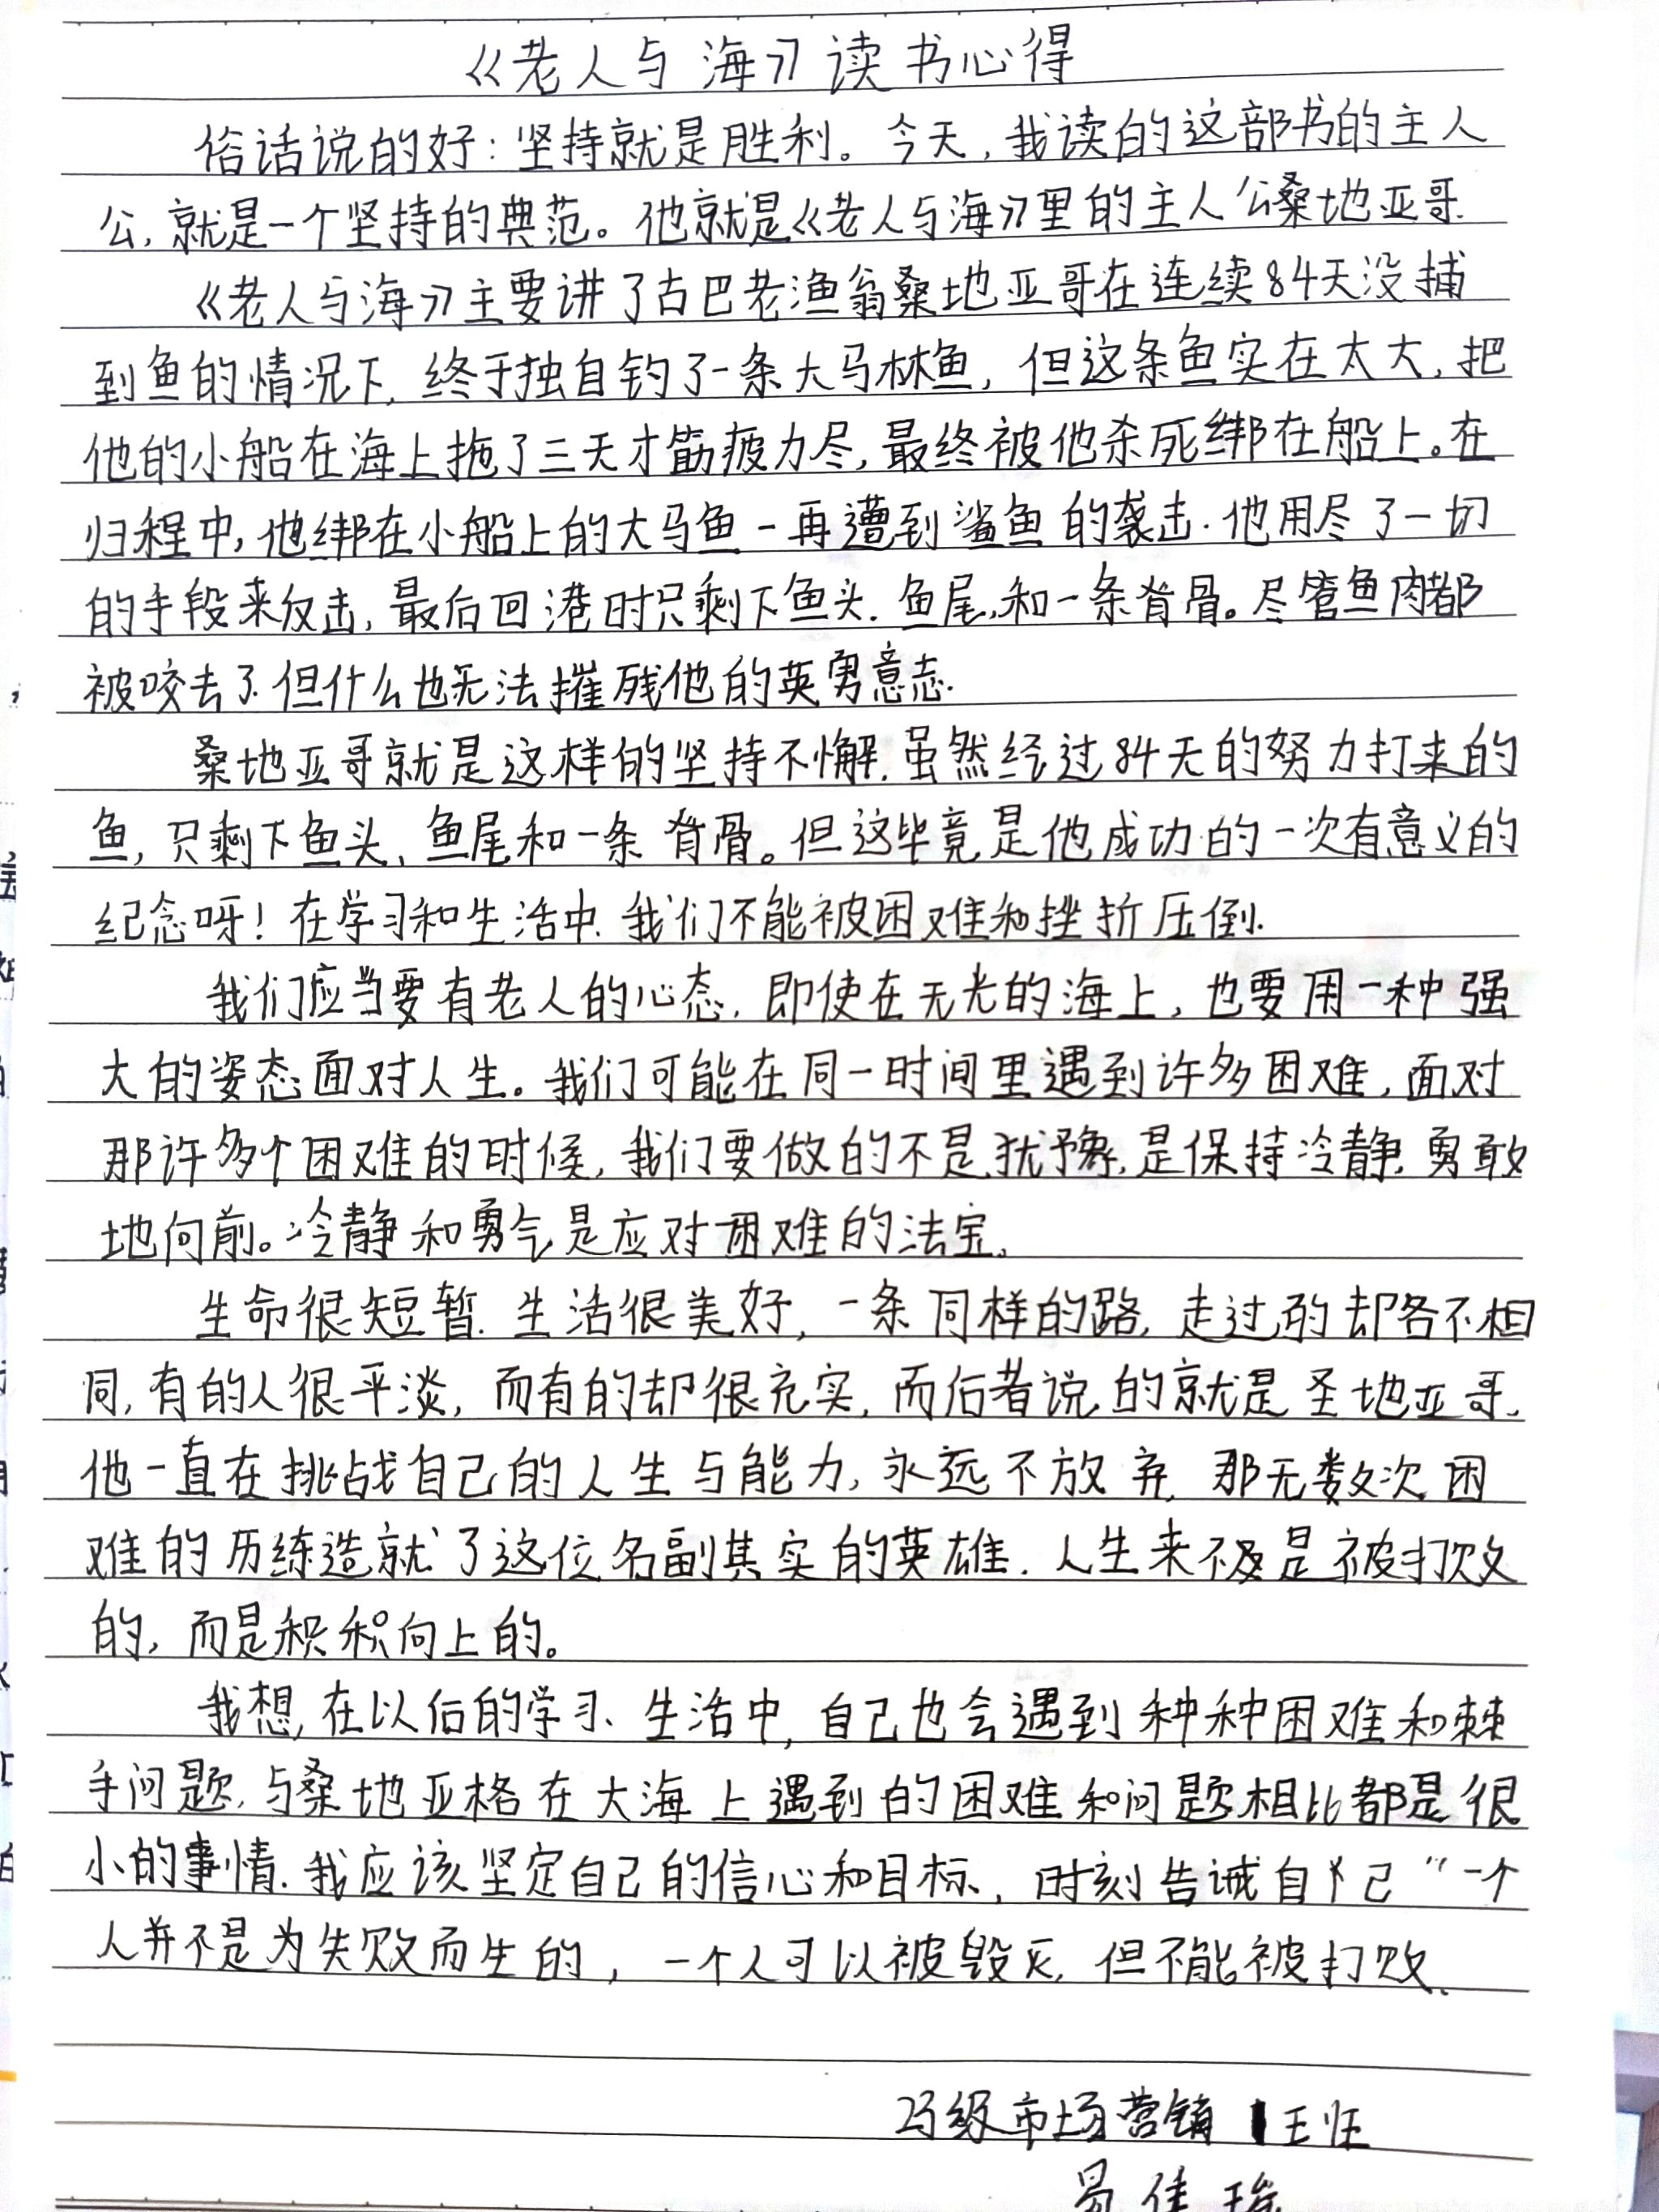 《老人与海》读书心得
俗话说的好：坚持就是胜利。今天，我读的这部书的主人
公，就是一个坚持的典范。他就是《老人与海》里的主人公桑地亚哥.
《老人与海》主要讲了古巴老渔翁桑地亚哥在连续84天没捕
到鱼的情况下，终于独自钓了一条大马林鱼，但这条鱼实在太大，把
他的小船在海上拖了三天才筋疲力尽，最终被他杀死绑在船上。在
归程中，他绑在小船上的大马鱼一再遭到鲨鱼的袭击.他用尽了一切
的手段来反击，最后回港时只剩下鱼头.鱼尾,和一条脊骨。尽管鱼肉都
被咬去了.但什么也无法摧残他的英勇意志.
桑地亚哥就是这样的坚持不懈.虽然经过84天的努力打来的
鱼，只剩下鱼头、鱼尾和一条脊骨。但这毕竟是他成功的一次有意义的
纪念呀！在学习和生活中.我们不能被困难和挫折压倒.
我们应当要有老人的心态，即使在无光的海上，也要用一种强
大的姿态面对人生。我们可能在同一时间里遇到许多困难，面对
那许多个困难的时候，我们要做的不是犹豫，是保持冷静.勇敢
地向前。冷静和勇气是应对困难的法宝。
生命很短暂.生活很美好，一条同样的路，走过的却各不相
同，有的人很平淡，而有的却很充实，而后者说的就是圣地亚哥.
他一直在挑战自己的人生与能力，永远不放弃，那无数次困
难的历练造就了这位名副其实的英雄.人生来不是被打败
的，而是积积向上的。
我想，在以后的学习、生活中，自己也会遇到种种困难和棘
手问题，与桑地亚格在大海上遇到的困难和问题相比都是很
小的事情.我应该坚定自己的信心和目标，时刻告诫自己“一个
人并不是为失败而生的，一个人可以被毁灭，但不能被打败.
23级市场营销1王班
易佳